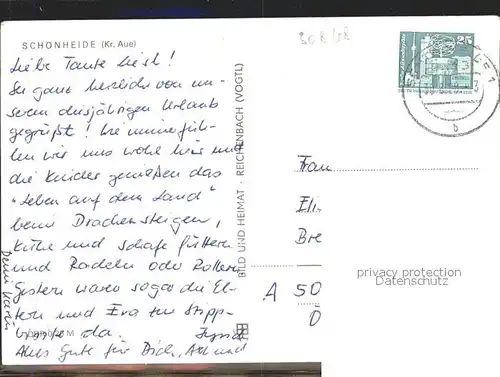 308/58
SCHÖNHEIDE (Kr. Aue)
Liebe Tante Liesl!
Sei ganz herzlich von un-
serem diesjährigen Urlaub
gegrüßt! Wie immer füh-
len wir uns wohl hier und
die Kinder genießen das
"Leben auf dem Land"
beim Drachensteigen,
Kühe und Schafe füttern
und Radeln oder Rollern
Gestern waren sogar die El-
tern und Eva zur Stipp-
visite da.
Alles Gute für Dich, Axel und
Deine Karin
BILD UND HEIMAT · REICHENBACH (VOGTL)
25
b
Frau
Eli
Bre
A 50
Ö
privacy protection
Datenschutz